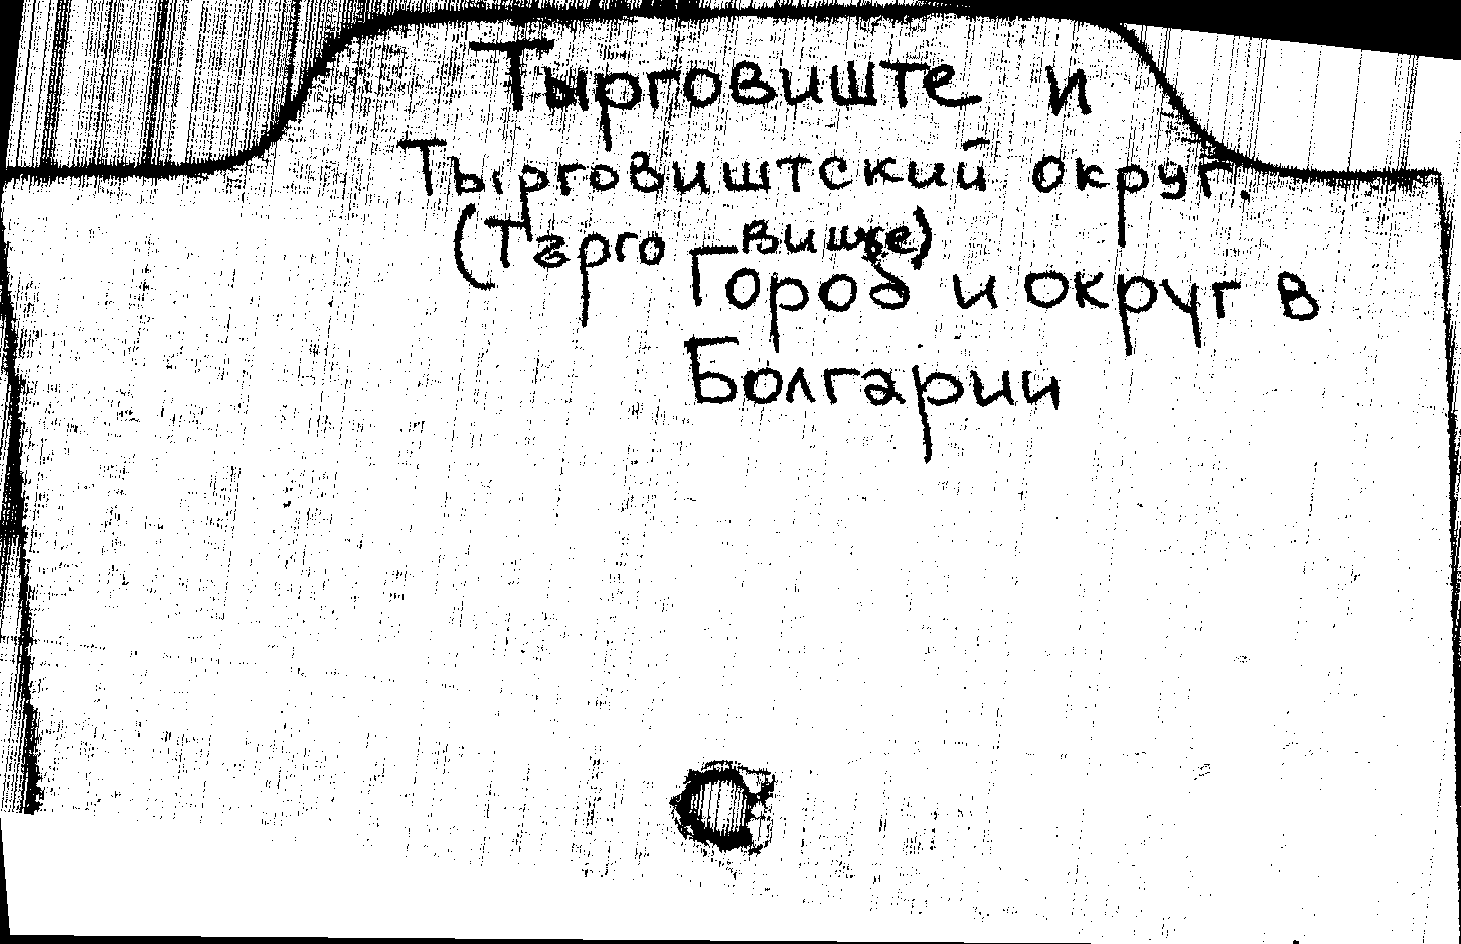 Тырговиште и
Тырговиштский округ.
(Търговище)
Город и округ в
Болгарии